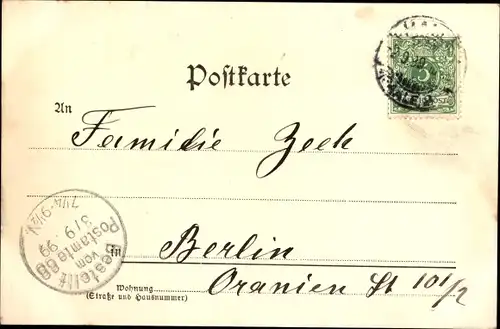 Postkarte
An
Familie Zech
Bestellt
vom
Postamte 68
3/9 99
7 1/4-9 1/2 V.
in
Berlin
Wohnung
(Straße und Hausnummer)
Oranien St 101/2